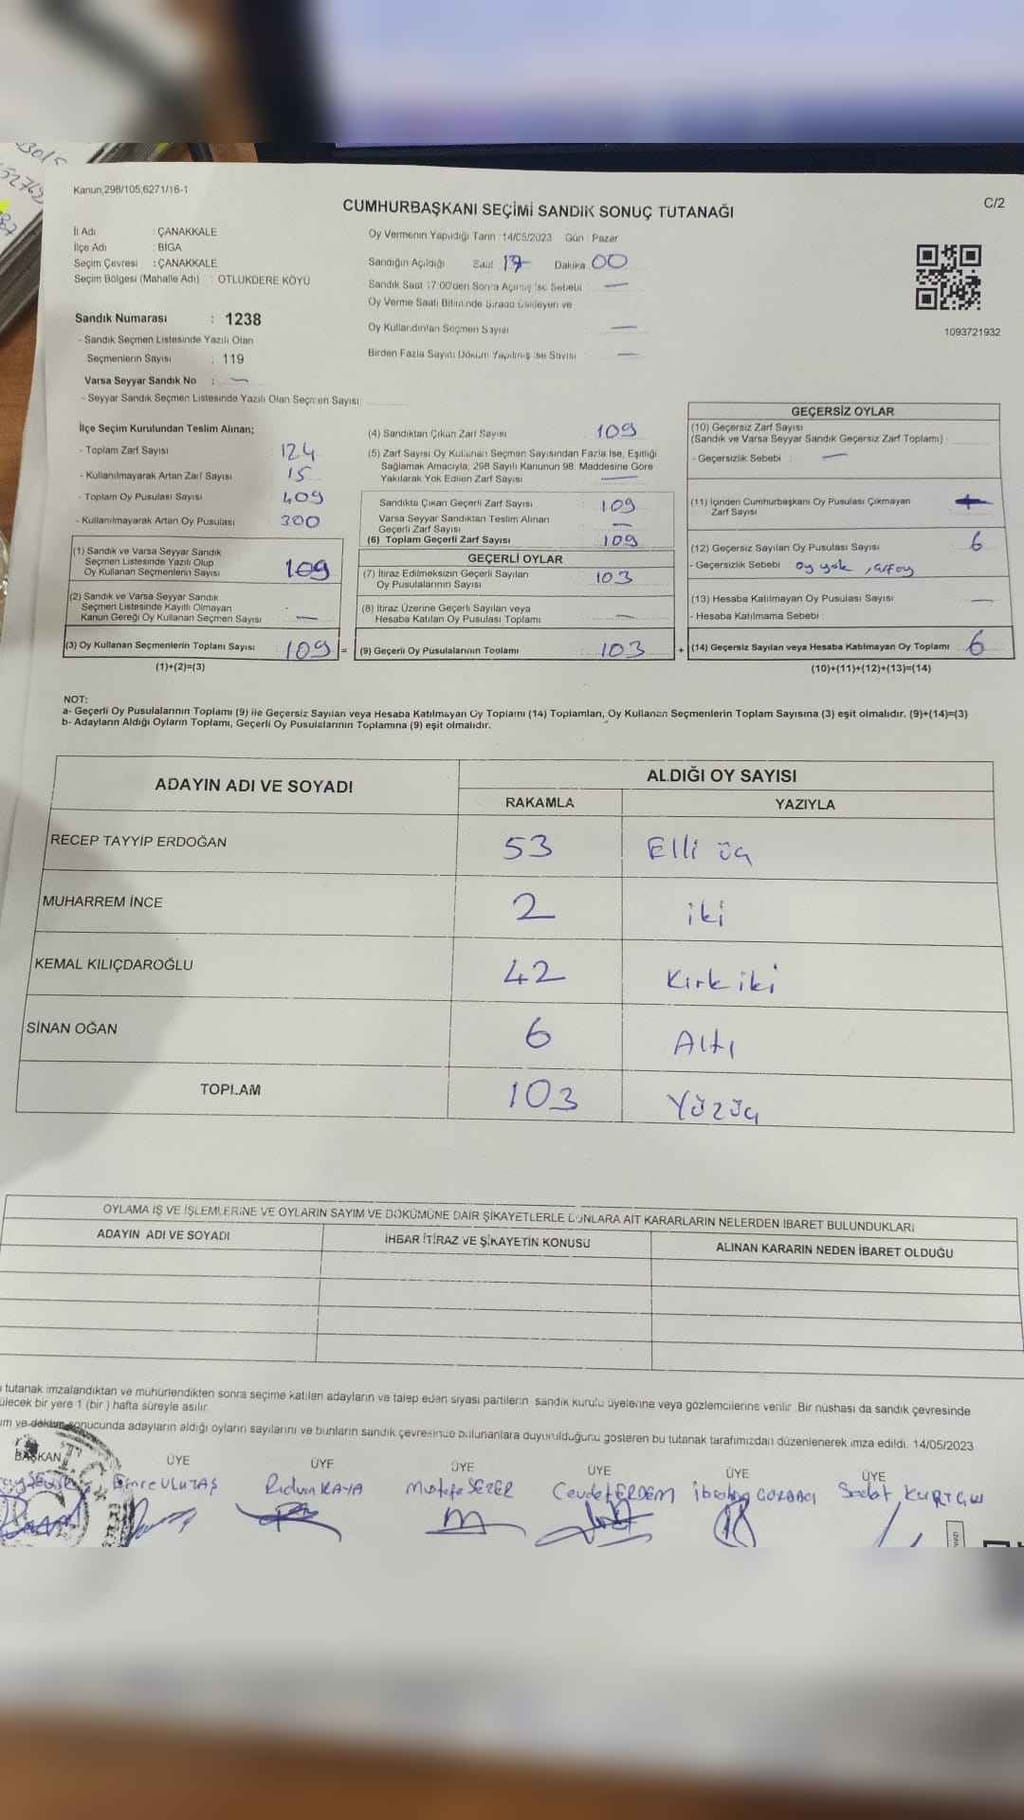 Kanun;298/105;6271/16-1
C/2
CUMHURBAŞKANI SEÇİMİ SANDIK SONUÇ TUTANAĞI
İl Adı : ÇANAKKALE
İlçe Adı : BİGA
Seçim Çevresi : ÇANAKKALE
Seçim Bölgesi (Mahalle Adı) : OTLUKDERE KÖYÜ
Oy Vermenin Yapıldığı Tarih : 14/05/2023 Gün : Pazar
Sandığın Açıldığı Saat 17 Dakika 00
Sandık Saat 17:00'den Sonra Açılmış İse Sebebi —
Oy Verme Saati Bitiminde Sırada Bekleyen ve
Oy Kullandırılan Seçmen Sayısı —
Birden Fazla Sayım Döküm Yapılmış İse Sayısı —
1093721932
Sandık Numarası : 1238
- Sandık Seçmen Listesinde Yazılı Olan
Seçmenlerin Sayısı : 119
Varsa Seyyar Sandık No : —
- Seyyar Sandık Seçmen Listesinde Yazılı Olan Seçmen Sayısı
İlçe Seçim Kurulundan Teslim Alınan;
- Toplam Zarf Sayısı 124
- Kullanılmayarak Artan Zarf Sayısı 15
- Toplam Oy Pusulası Sayısı 409
- Kullanılmayarak Artan Oy Pusulası 300
(1) Sandık ve Varsa Seyyar Sandık
Seçmen Listesinde Yazılı Olup
Oy Kullanan Seçmenlerin Sayısı 109
(2) Sandık ve Varsa Seyyar Sandık
Seçmen Listesinde Kayıtlı Olmayan
Kanun Gereği Oy Kullanan Seçmen Sayısı —
(3) Oy Kullanan Seçmenlerin Toplam Sayısı 109 =
(1)+(2)=(3)
(4) Sandıktan Çıkan Zarf Sayısı 109
(5) Zarf Sayısı Oy Kullanan Seçmen Sayısından Fazla İse, Eşitliği
Sağlamak Amacıyla, 298 Sayılı Kanunun 98. Maddesine Göre
Yakılarak Yok Edilen Zarf Sayısı —
Sandıkta Çıkan Geçerli Zarf Sayısı 109
Varsa Seyyar Sandıktan Teslim Alınan
Geçerli Zarf Sayısı —
(6) Toplam Geçerli Zarf Sayısı 109
GEÇERLİ OYLAR
(7) İtiraz Edilmeksizin Geçerli Sayılan
Oy Pusulalarının Sayısı 103
(8) İtiraz Üzerine Geçerli Sayılan veya
Hesaba Katılan Oy Pusulası Toplamı —
(9) Geçerli Oy Pusulalarının Toplamı 103 +
GEÇERSİZ OYLAR
(10) Geçersiz Zarf Sayısı
(Sandık ve Varsa Seyyar Sandık Geçersiz Zarf Toplamı)
- Geçersizlik Sebebi : —
(11) İçinden Cumhurbaşkanı Oy Pusulası Çıkmayan
Zarf Sayısı
(12) Geçersiz Sayılan Oy Pusulası Sayısı 6
- Geçersizlik Sebebi oy yok
(13) Hesaba Katılmayan Oy Pusulası Sayısı —
- Hesaba Katılmama Sebebi
(14) Geçersiz Sayılan veya Hesaba Katılmayan Oy Toplamı 6
(10)+(11)+(12)+(13)=(14)
NOT:
a- Geçerli Oy Pusulalarının Toplamı (9) ile Geçersiz Sayılan veya Hesaba Katılmayan Oy Toplamı (14) Toplamları, Oy Kullanan Seçmenlerin Toplam Sayısına (3) eşit olmalıdır. (9)+(14)=(3)
b- Adayların Aldığı Oyların Toplamı, Geçerli Oy Pusulalarının Toplamına (9) eşit olmalıdır.
ADAYIN ADI VE SOYADI
ALDIĞI OY SAYISI
RAKAMLA YAZIYLA
RECEP TAYYİP ERDOĞAN 53 Elli üç
MUHARREM İNCE 2 iki
KEMAL KILIÇDAROĞLU 42 Kırk iki
SİNAN OĞAN 6 Altı
TOPLAM 103 Yüzüç
OYLAMA İŞ VE İŞLEMLERİNE VE OYLARIN SAYIM VE DÖKÜMÜNE DAİR ŞİKAYETLERLE BUNLARA AİT KARARLARIN NELERDEN İBARET BULUNDUKLARI
ADAYIN ADI VE SOYADI İHBAR İTİRAZ VE ŞİKAYETİN KONUSU ALINAN KARARIN NEDEN İBARET OLDUĞU
tutanak imzalandıktan ve mühürlendikten sonra seçime katılan adayların ve talep eden siyasi partilerin sandık kurulu üyelerine veya gözlemcilerine verilir. Bir nüshası da sandık çevresinde
bir yere 1 (bir) hafta süreyle asılır.
ve döküm sonucunda adayların aldığı oyların sayılarını ve bunların sandık çevresince bulunanlara duyurulduğunu gösteren bu tutanak tarafımızdan düzenlenerek imza edildi. 14/05/2023
BAŞKAN ÜYE ÜYE ÜYE ÜYE ÜYE ÜYE
Emre ULUTAŞ Rıdvan KAYA Mustafa SEZER Cevdet ERDEM